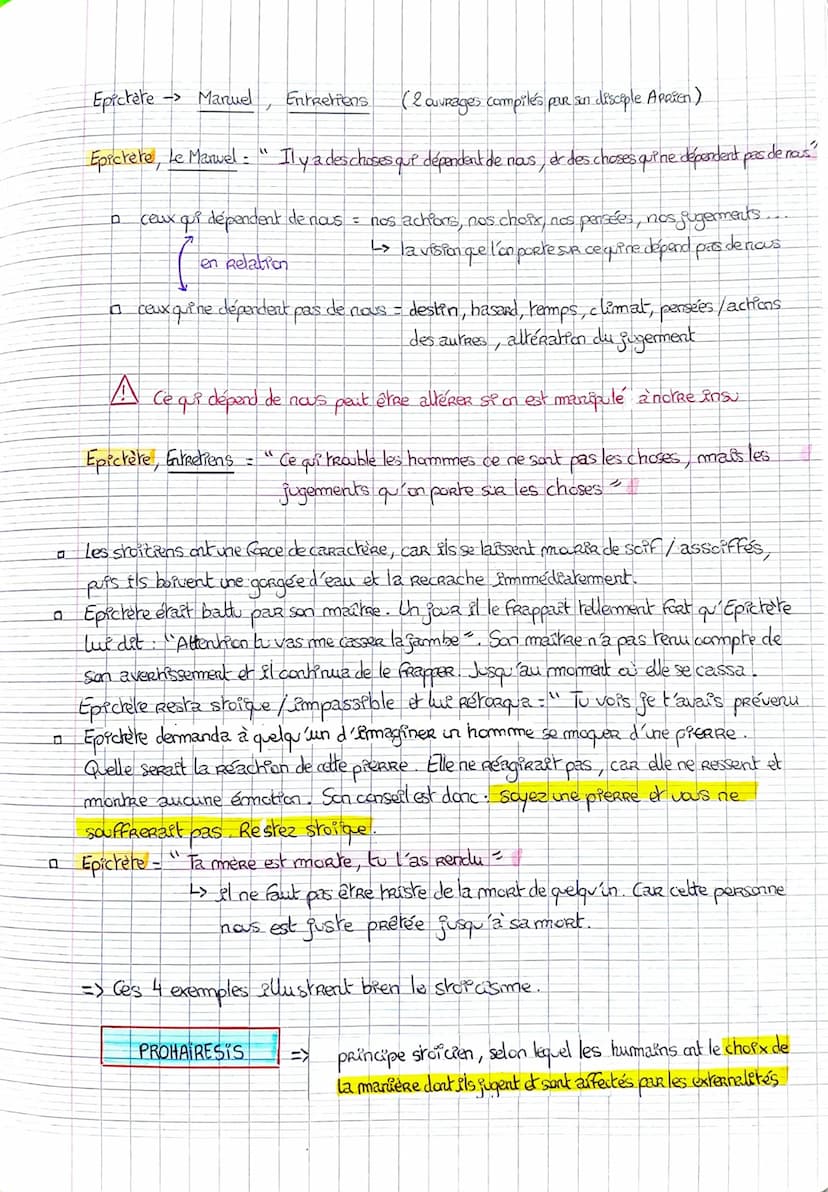 Epictète -> Manuel, Entretiens (2 ouvrages compilés par son disciple Arrien)
Epictète, Le Manuel : " Il y a des choses qui dépendent de nous, et des choses qui ne dépendent pas de nous"
ceux qui dépendent de nous = nos actions, nos choix, nos pensées, nos jugements...
↳ la vision que l'on porte sur ce qui ne dépend pas de nous
en relation
ceux qui ne dépendent pas de nous = destin, hasard, temps, climat, pensées / actions
des autres, altération du jugement
⚠ Ce qui dépend de nous peut être altérer si on est manipulé à notre insu
Epictète, Entretiens = " Ce qui trouble les hommes ce ne sont pas les choses, mais les
jugements qu'on porte sur les choses "
Les stoïciens ont une force de caractère, car ils se laissent mourir de soif / assoiffés,
puis ils boivent une gorgée d'eau et la recrache immédiatement.
Epictète était battu par son maître. Un jour il le frappait tellement fort qu'Epictète
lui dit : "Attention tu vas me casser la jambe". Son maître n'a pas tenu compte de
son avertissement et il continua de le frapper. Jusqu'au moment où elle se cassa.
Epictète resta stoïque / impassible et lui rétorqua = " Tu vois je t'avais prévenu
Epictète demanda à quelqu'un d'imaginer un homme se moquer d'une pierre.
Quelle serait la réaction de cette pierre. Elle ne réagirait pas, car elle ne ressent et
montre aucune émotion. Son conseil est donc : soyez une pierre et vous ne
souffrerait pas. Restez stoïque.
Epictète = " Ta mère est morte, tu l'as rendu "
↳ il ne faut pas être triste de la mort de quelqu'n. Car cette personne
nous est juste prêtée jusqu'à sa mort.
=> Ces 4 exemples illustrent bien le stoïcisme.
PROHAÏRESIS => principe stoïcien, selon lequel les humains ont le choix de
la manière dont ils jugent et sont affectés par les externalités